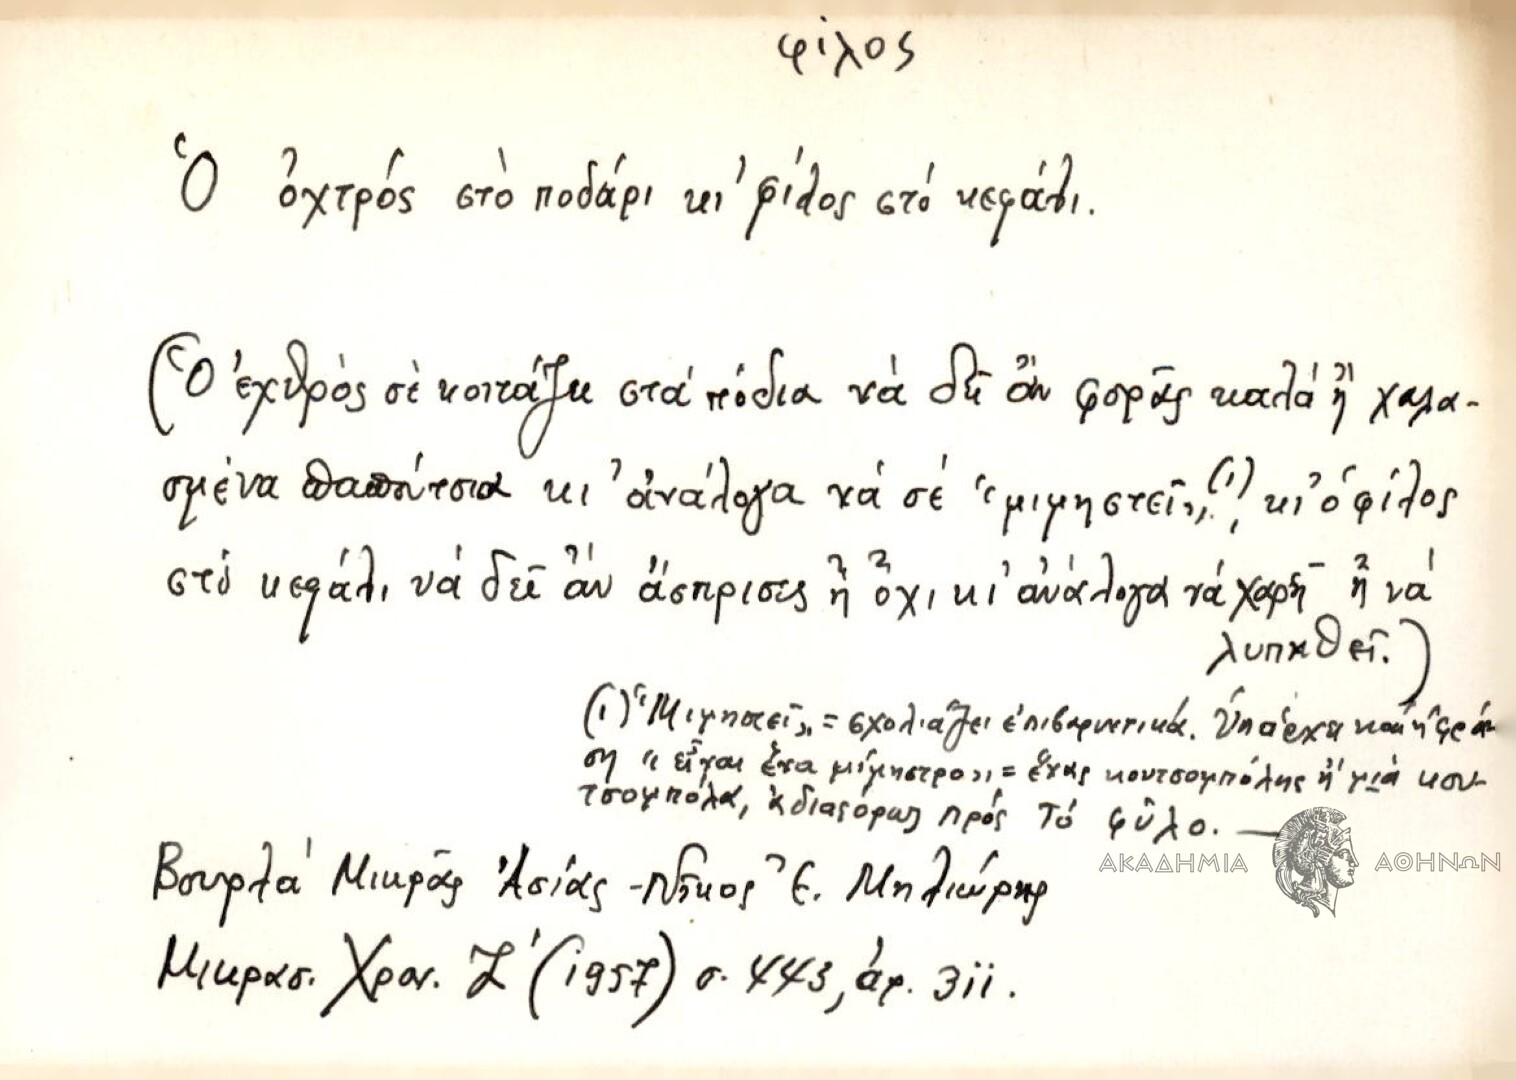 φίλος
Ὁ ὀχτρός στὸ ποδάρι κι' φίλος στό κεφάλι.
(Ὁ ἐχθρὸς σὲ κοιτάζει στά πόδια νά δεῖ ἂν φορᾶς καλά ἢ χαλα-
σμένα παπούτσια κι' ἀνάλογα νά σέ "μιμηστεῖ",(1) κι' ὁ φίλος
στό κεφάλι νά δεῖ ἂν ἄσπρισες ἢ ὄχι κι' ἀνάλογα νά χαρῆ ἢ νά
λυπηθεῖ.)
(1) "Μιμηστεῖ" = σχολιάζει ἐπιβαρυντικά. Ὑπάρχει καί ἡ φρά-
ση "εἶναι ἕνα μίμηστρο" = ἕνας κουτσομπόλης ἤ μιά κου-
τσομπόλα, ἀδιαφόρως πρός τό φῦλο. —
Βουρλά Μικρᾶς Ἀσίας - Νῖκος Ἐ. Μηλιώρης
Μικρασ. Χρον. Ζ' (1957) σ. 443, ἀρ. 311.
ΑΚΑΔΗΜΙΑ ΑΘΗΝΩΝ